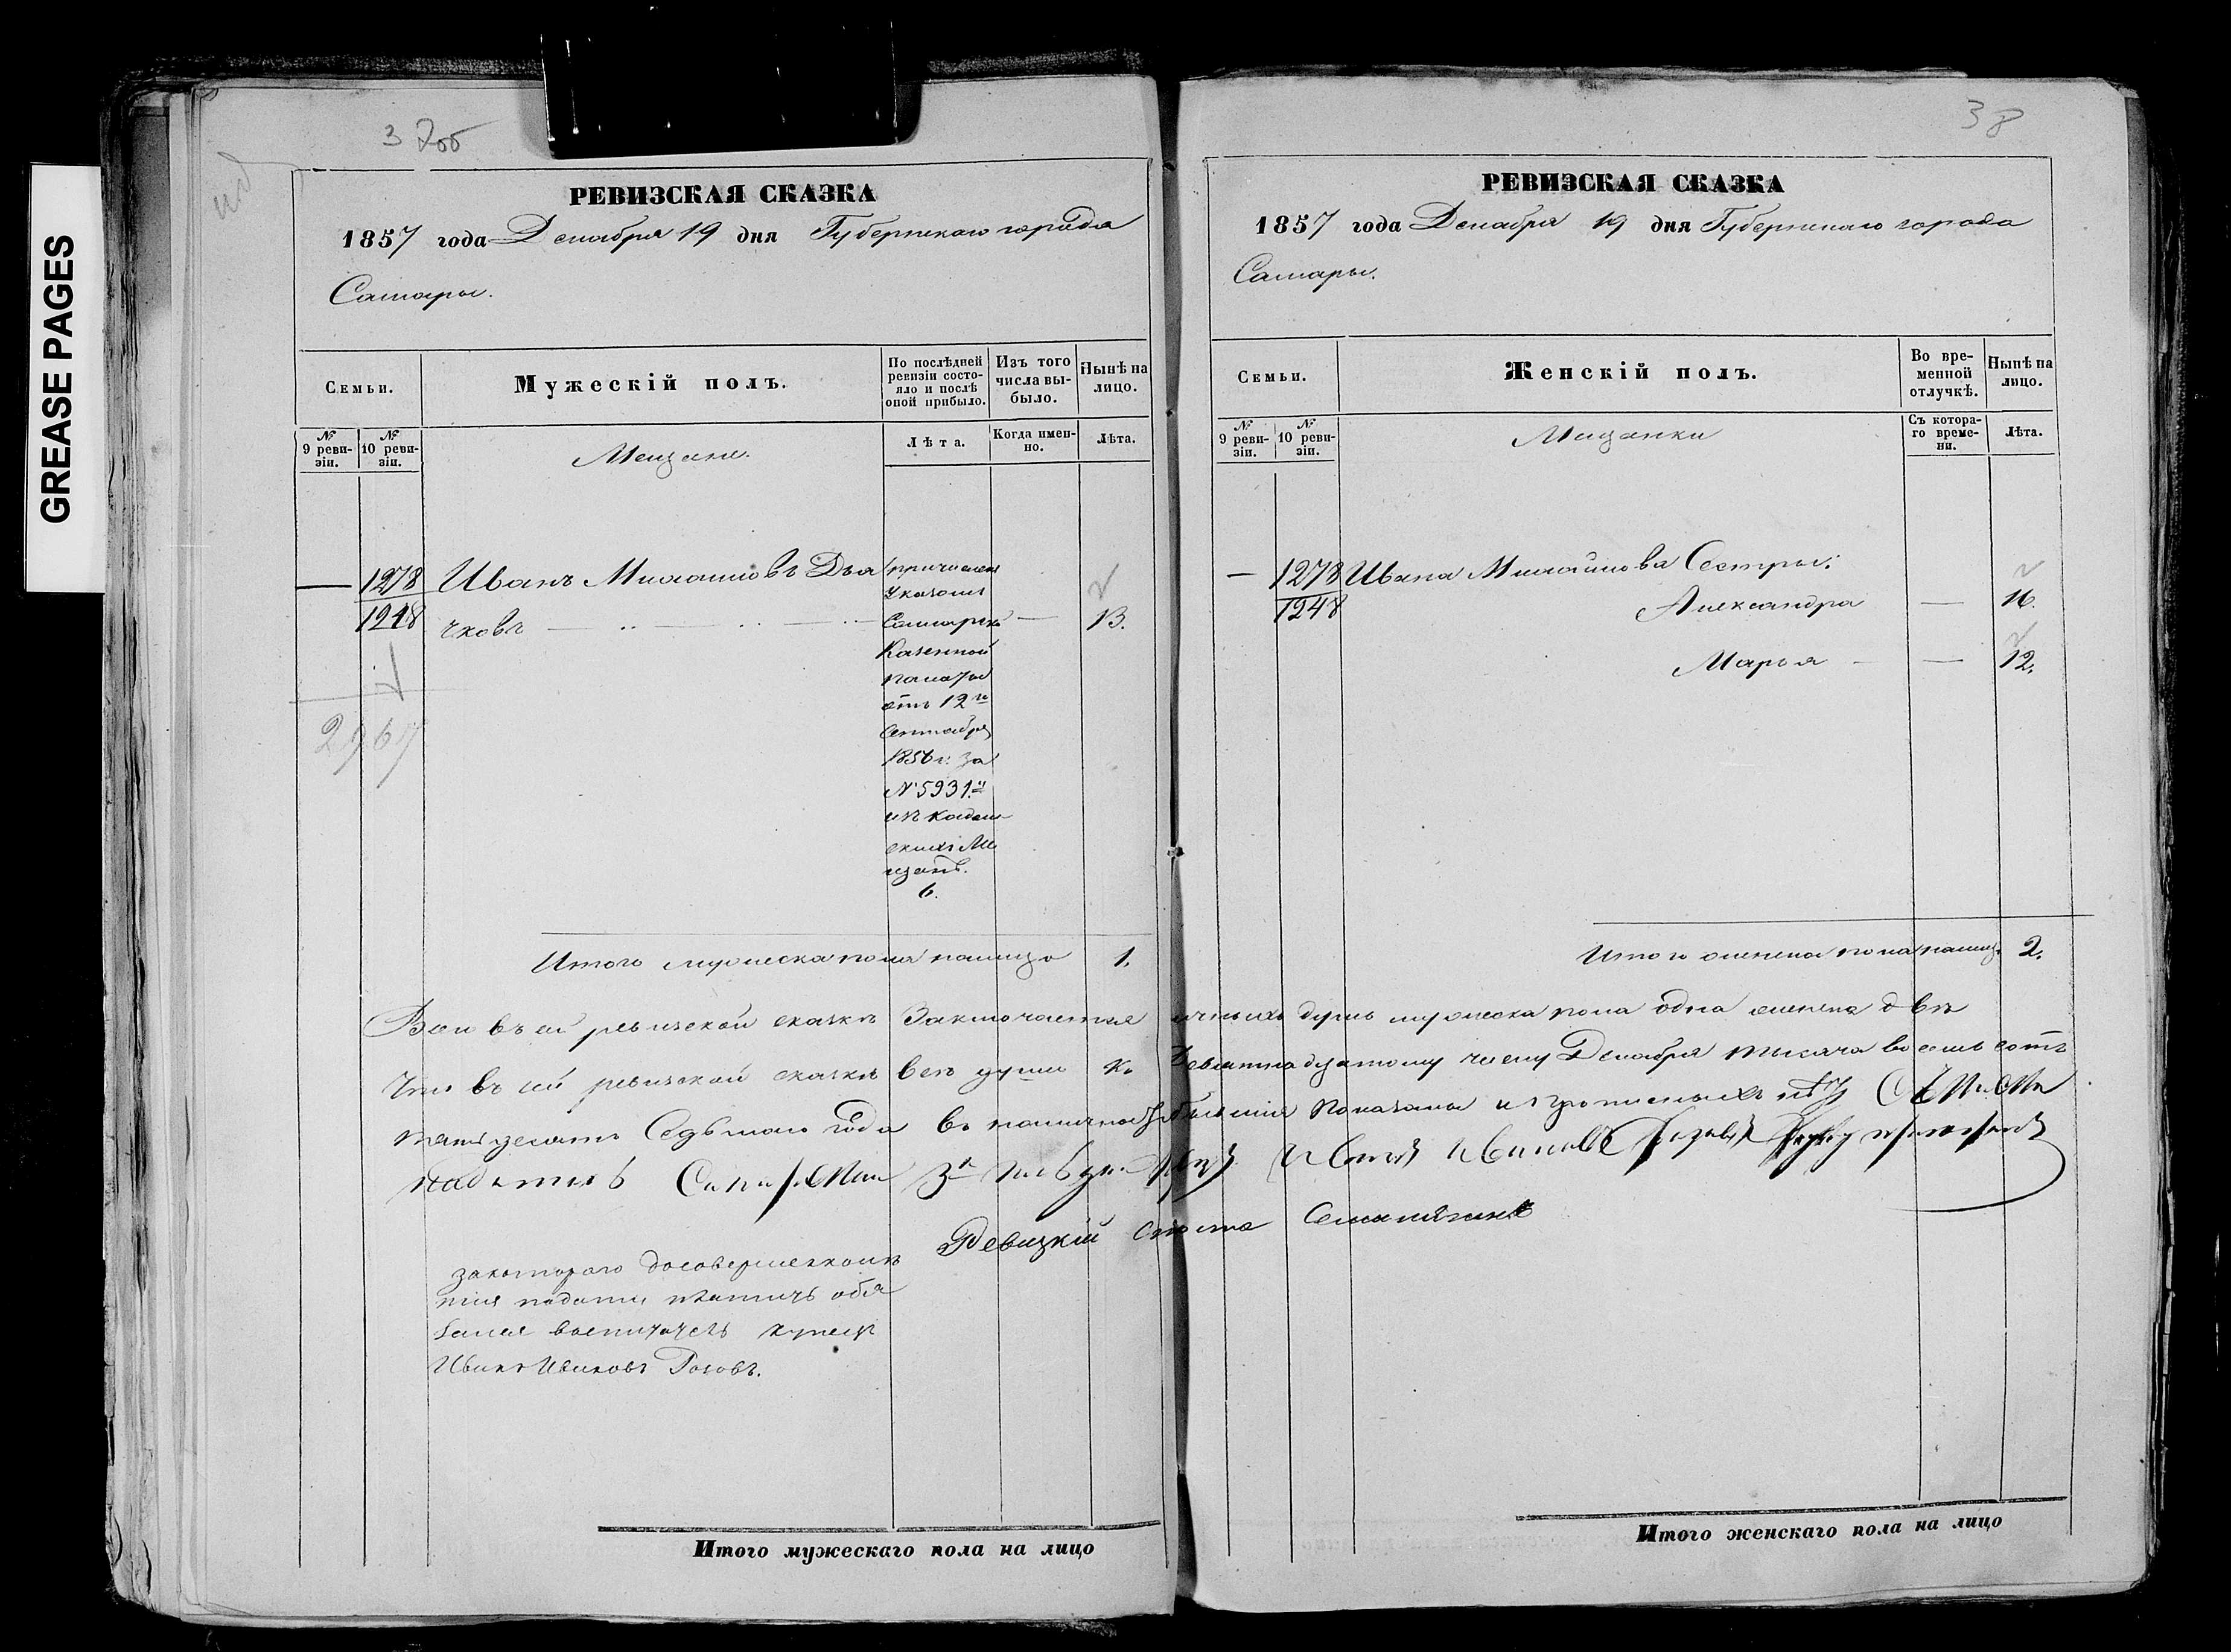 GREASE PAGES
37об
РЕВИЗСКАЯ СКАЗКА
1857 года Декабря 19 дня Губернскаго города
Самары.
Семьи.
Мужескій полъ.
По послѣдней ревизіи состояло и послѣ оной прибыло.
Изъ того числа выбыло.
Нынѣ на лицо.
№ 9 ревизіи.
№ 10 ревизіи.
Мещане.
Лѣта.
Когда именно.
Лѣта.
— 1278 Иванъ Михайловъ Дья
1248 чковъ — 13.
причислен
указомъ
Самарской
Казенной
палаты
отъ 12го
Сентября
1856 г. за
№ 5931.
изъ кадом
скихъ Ме
щанъ.
6.
2967
Итого мужеска пола налицо 1.
38
РЕВИЗСКАЯ СКАЗКА
1857 года Декабря 19 дня Губернскаго города
Самары.
Семьи.
Женскій полъ.
Во временной отлучкѣ.
Нынѣ на лицо.
№ 9 ревизіи.
№ 10 ревизіи.
Мещанки
Съ котораго времени.
Лѣта.
— 1278 Ивана Михайлова Сестры:
1248 Александра — 16.
Марья — — 12.
Итого женска пола налицо 2.
Всего въ сей ревизской сказкѣ Заключается наличныхъ душъ мужеска пола одна женска двѣ
Что въ сей ревизской сказкѣ всѣ души къ Девятнадцатому числу Декабря тысяча восемь сотъ
пятьдесятъ Седьмаго года въ наличности бывшія показаны и прописныхъ нѣтъ
Иванъ Ивановъ
Ревизкій
за котораго до совершеннолѣ
тія подати платить обя
зался воспитатель купецъ
Иванъ Ивановъ Розовъ.
Итого мужескаго пола на лицо
Итого женскаго пола на лицо